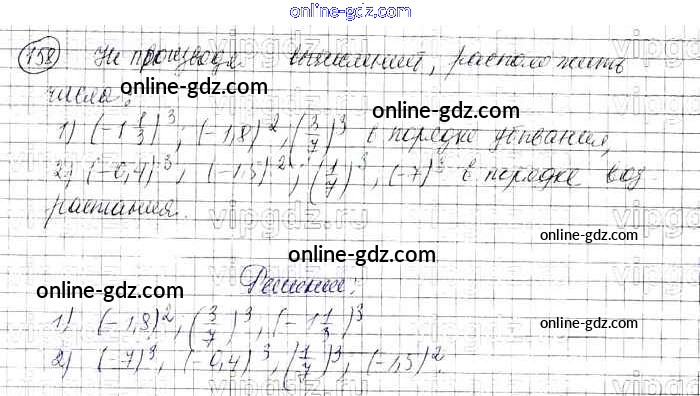 online-gdz.com
158 Не производя вычислений, расположить
числа:
online-gdz.com
online-gdz.com
1) (-1 1/3)^3; (-1,8)^2; (3/7)^3 в порядке убывания,
2) (-0,4)^3; (-1,5)^2; (1/7)^3, (-7)^3 в порядке воз
растания.
online-gdz.com
online-gdz.com
online-gdz.com
Решение:
online-gdz.com
1) (-1,8)^2, (3/7)^3, (-1 1/3)^3
online-gdz.com
online-gdz.com
2) (-7)^3, (-0,4)^3, (1/7)^3, (-1,5)^2.
online-gdz.com